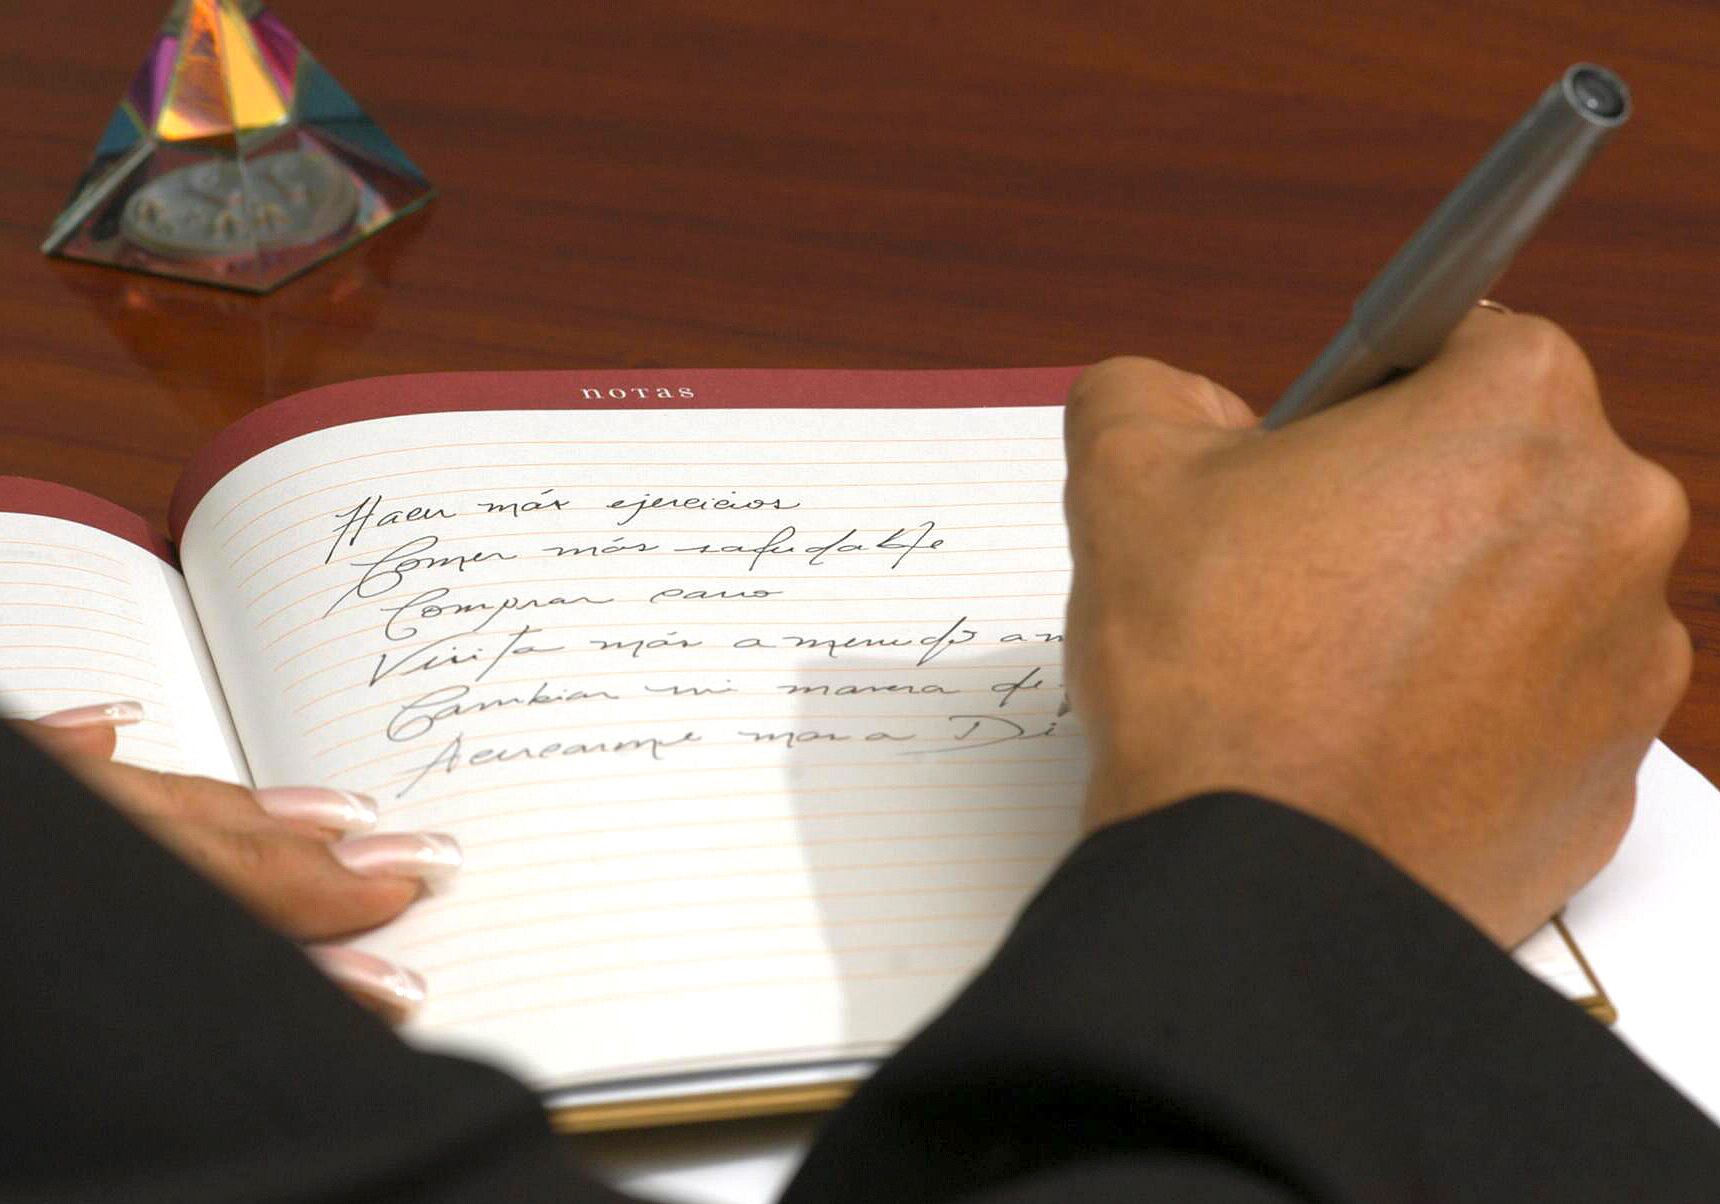 notas
Hacer más ejercicios
Comer más saludable
Comprar carro
Visita más a menudo a m
Cambiar mi manera de
Acercarme mas a Di